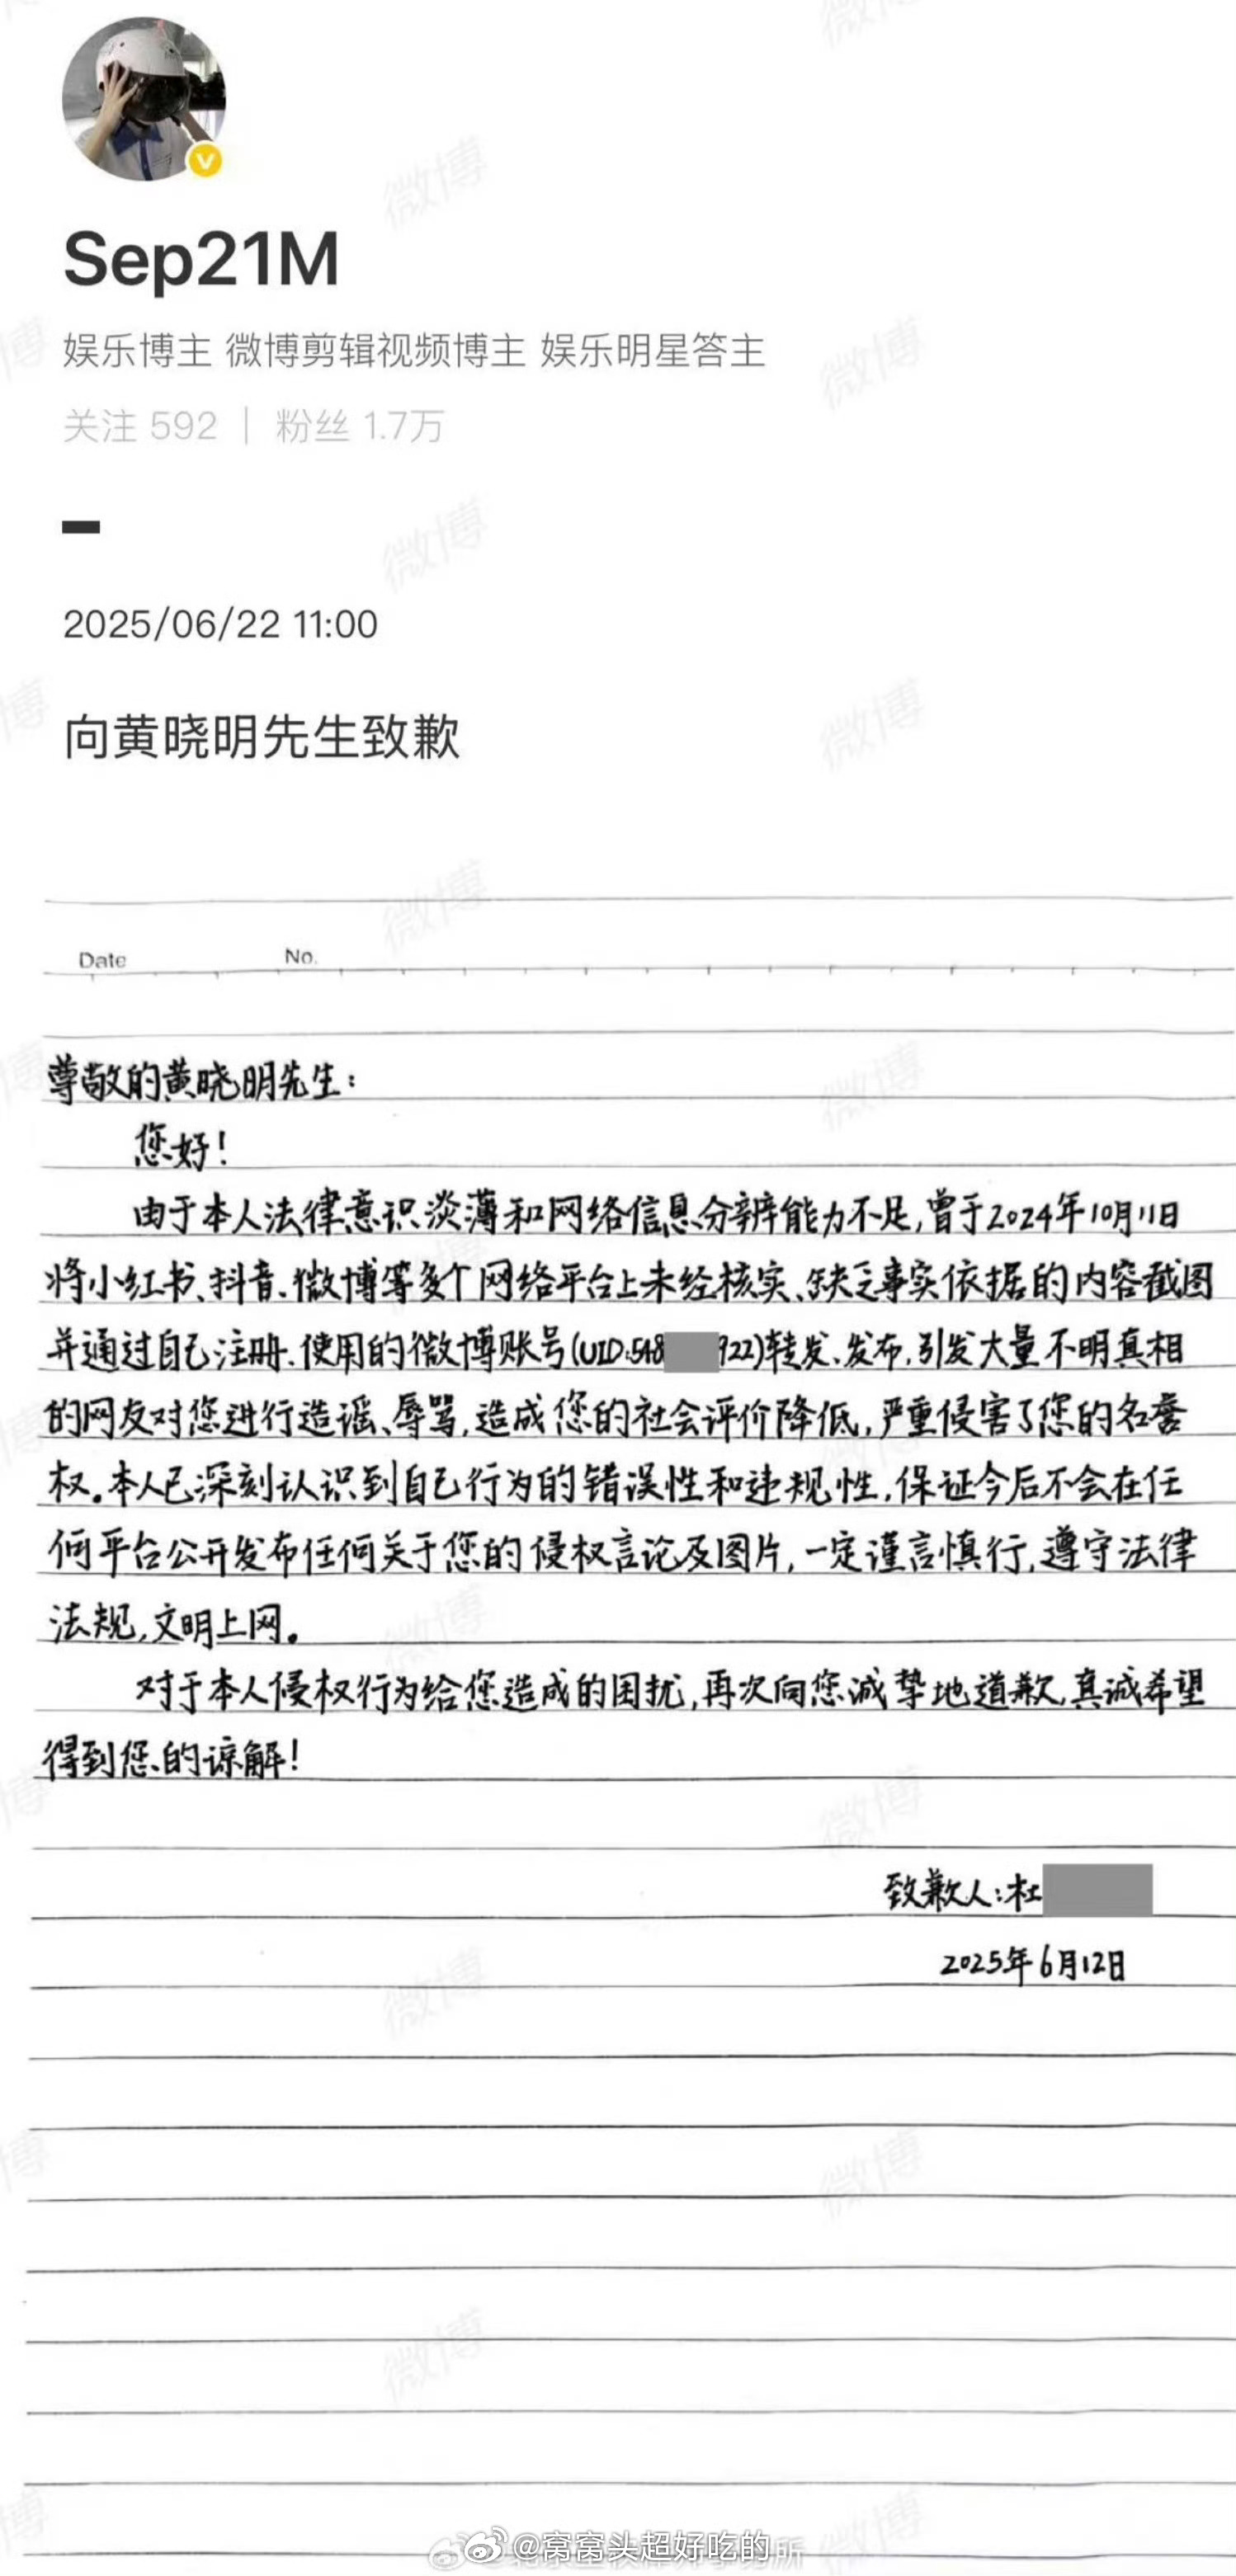 Sep21M
娱乐博主 微博剪辑视频博主 娱乐明星答主
关注 592 | 粉丝 1.7万
2025/06/22 11:00
向黄晓明先生致歉
Date No.
尊敬的黄晓明先生：
您好！
由于本人法律意识淡薄和网络信息分辨能力不足，曾于2024年10月11日
将小红书、抖音、微博等多个网络平台上未经核实、缺乏事实依据的内容截图
并通过自己注册、使用的微博账号(UID:548 922)转发、发布，引发大量不明真相
的网友对您进行造谣、辱骂，造成您的社会评价降低，严重侵害了您的名誉
权。本人已深刻认识到自己行为的错误性和违规性，保证今后不会在任
何平台公开发布任何关于您的侵权言论及图片，一定谨言慎行，遵守法律
法规，文明上网。
对于本人侵权行为给您造成的困扰，再次向您诚挚地道歉，真诚希望
得到您的谅解！
致歉人：杜
2025年6月12日
@窝窝头超好吃的
微博